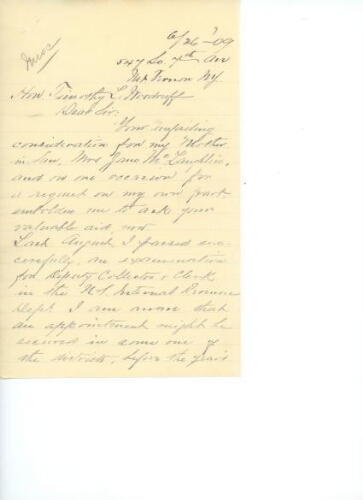 6/26-'09
547 So. 7th Ave
Mt Vernon NY.
Hon. Timothy L. Woodruff
Dear Sir:
Your unfailing
consideration for my Mother
in law, Mrs Jane McLaughlin,
and on one occasion for
a request on my own part
embolden me to ask your
valuable aid, now
Last August I passed suc-
cessfully, an examination
for Deputy Collector & Clerk,
in the U.S. Internal Revenue
Dept I am aware that
an appointment might be
secured in some one of
the districts, before the year's